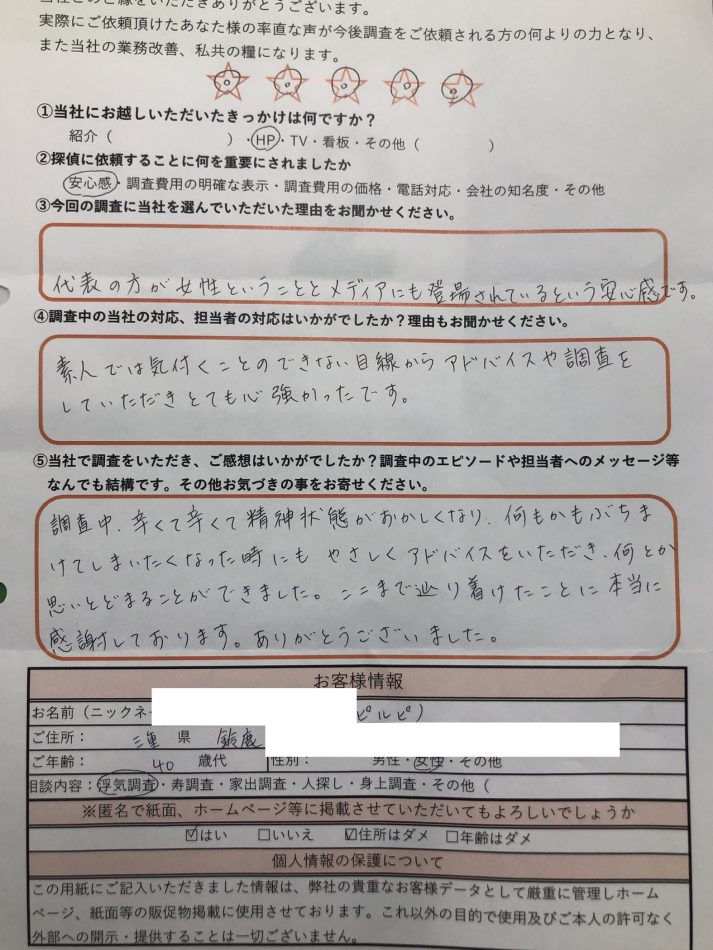 当社とのご縁をいただきありがとうございます。
実際にご依頼頂けたあなた様の率直な声が今後調査をご依頼される方の何よりの力となり、
また当社の業務改善、私共の糧になります。
①当社にお越しいただいたきっかけは何ですか？
紹介（　　　　　　　）・HP・TV・看板・その他（　　　　　）
②探偵に依頼することに何を重要にされましたか
安心感・調査費用の明確な表示・調査費用の価格・電話対応・会社の知名度・その他
③今回の調査に当社を選んでいただいた理由をお聞かせください。
代表の方が女性ということとメディアにも登場されているという安心感です。
④調査中の当社の対応、担当者の対応はいかがでしたか？理由もお聞かせください。
素人では気付くことのできない目線からアドバイスや調査を
していただきとても心強かったです。
⑤当社で調査をいただき、ご感想はいかがでしたか？調査中のエピソードや担当者へのメッセージ等
なんでも結構です。その他お気づきの事をお寄せください。
調査中、辛くて辛くて精神状態がおかしくなり、何もかもぶちま
けてしまいたくなった時にも やさしくアドバイスをいただき、何とか
思いとどまることができました。ここまで辿り着けたことに本当に
感謝しております。ありがとうございました。
お客様情報
お名前（ニックネ ピルピ）
ご住所： 三重 県 鈴鹿
ご年齢： 40 歳代 性別： 男性・女性・その他
相談内容：浮気調査・寿調査・家出調査・人探し・身上調査・その他（
※匿名で紙面、ホームページ等に掲載させていただいてもよろしいでしょうか
☑はい □いいえ ☑住所はダメ □年齢はダメ
個人情報の保護について
この用紙にご記入いただきました情報は、弊社の貴重なお客様データとして厳重に管理しホーム
ページ、紙面等の販促物掲載に使用させております。これ以外の目的で使用及びご本人の許可なく
外部への開示・提供することは一切ございません。